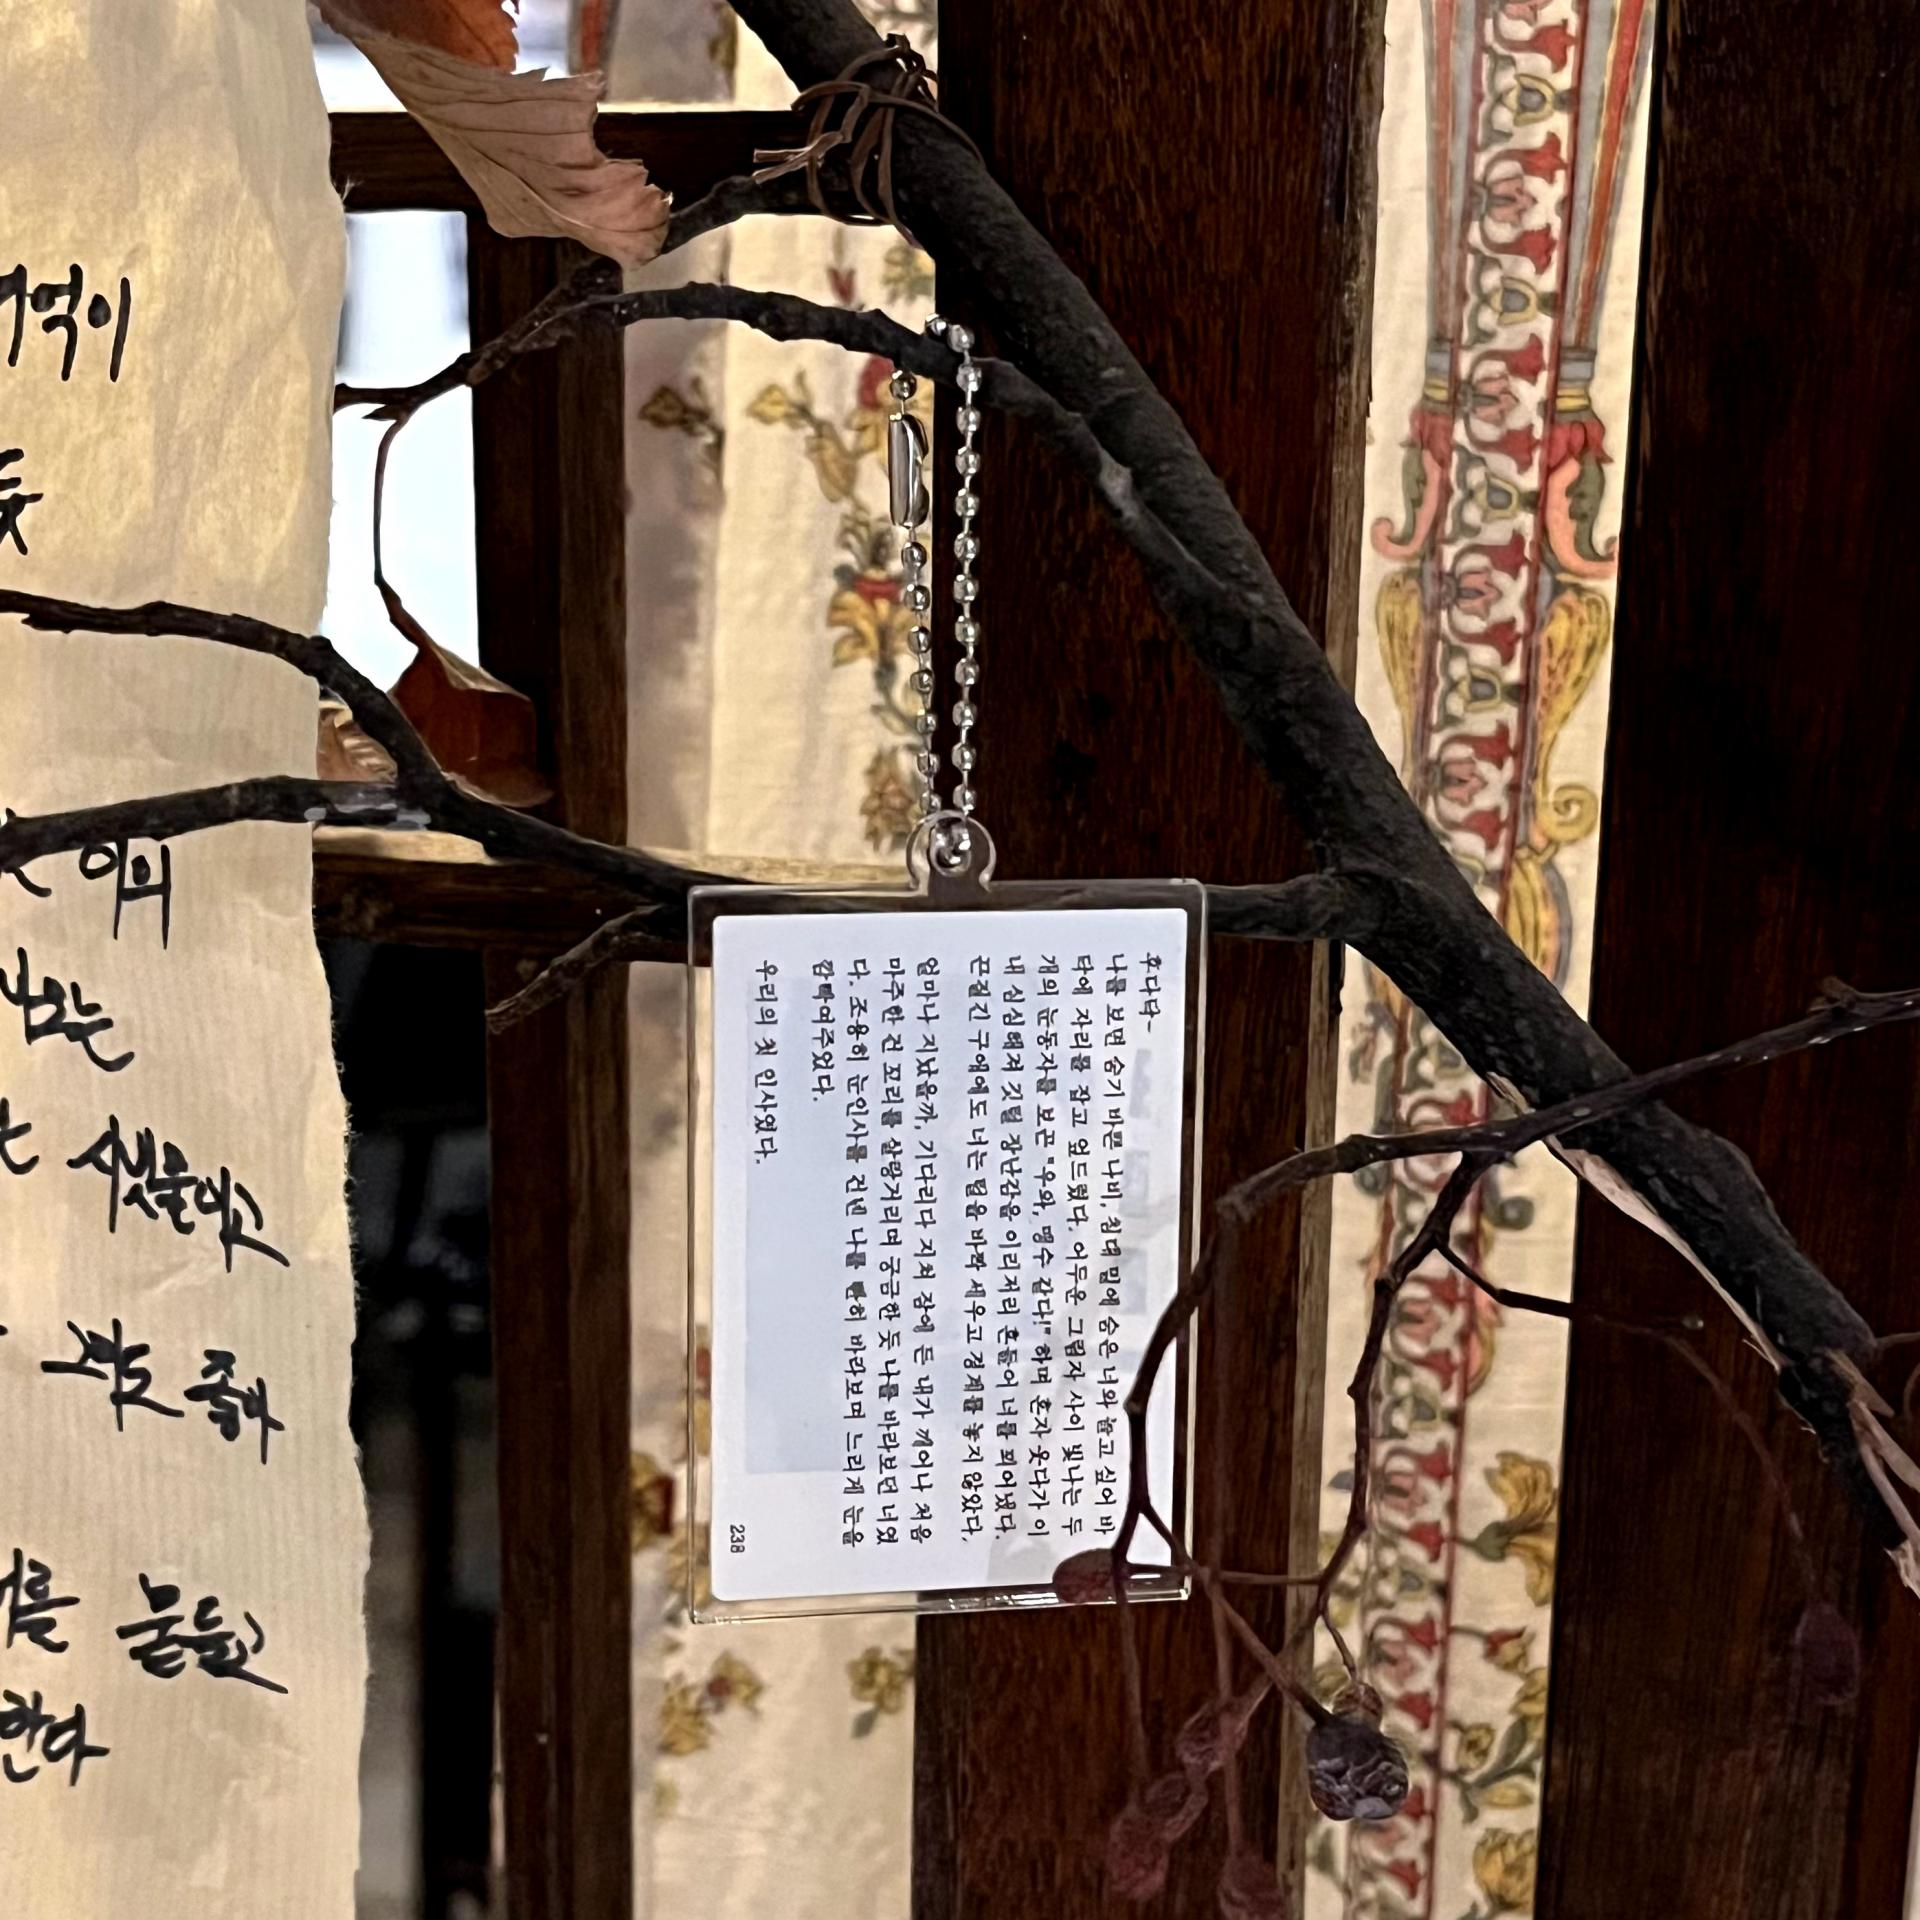 억이
듯
이의
나오는
샛물이고
그림도 좋다
물들고
한다
후다닥-
나를 보면 숨기 바쁜 나비, 침대 밑에 숨은 너와 놀고 싶어 바
닥에 자리를 잡고 엎드렸다. 어두운 그림자 사이 빛나는 두
개의 눈동자를 보곤 "우와, 맹수 같다!" 하며 혼자 웃다가 이
내 심심해져 깃털 장난감을 이리저리 흔들어 너를 꾀어냈다.
끈질긴 구애에도 너는 털을 바짝 세우고 경계를 놓지 않았다.
얼마나 지났을까, 기다리다 지쳐 잠에 든 내가 깨어나 처음
마주한 건 꼬리를 살랑거리며 궁금한 듯 나를 바라보던 너였
다. 조용히 눈인사를 건넨 나를 빤히 바라보며 느리게 눈을
깜빡여주었다.
우리의 첫 인사였다.
238